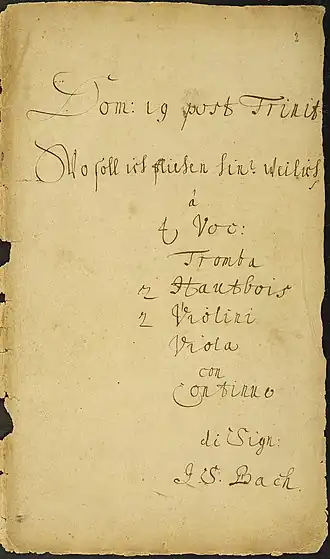 2
Dom: 19 post Trinit
Wo soll ich fliehen hin? weil ich
à
4 Voc:
Tromba
2 Hautbois
2 Violini
Viola
con
Continuo
di Sign:
J. S. Bach.